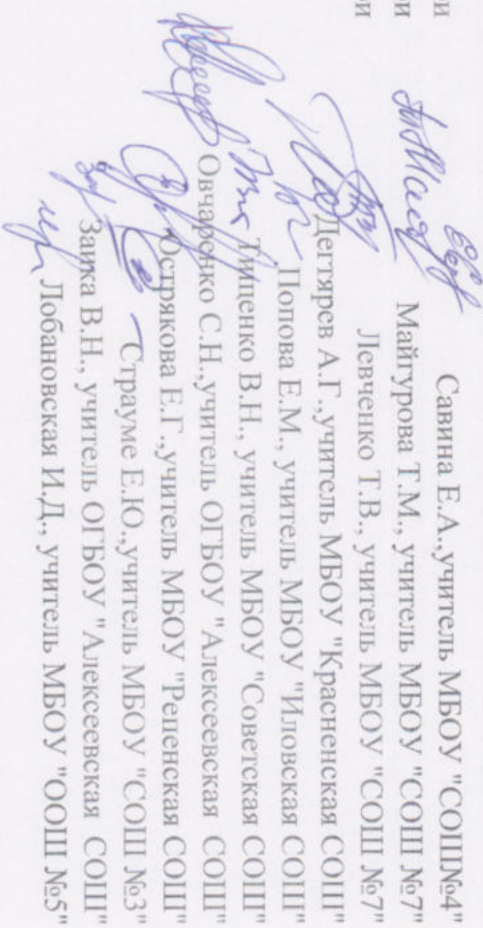 Савина Е.А.,учитель МБОУ "СОШ№4"
ри Майгурова Т.М., учитель МБОУ "СОШ №7"
ри Левченко Т.В., учитель МБОУ "СОШ №7"
ри Дегтярев А.Г.,учитель МБОУ "Красненская СОШ"
Попова Е.М., учитель МБОУ "Иловская СОШ"
Тищенко В.Н., учитель МБОУ "Советская СОШ"
Овчаренко С.Н.,учитель ОГБОУ "Алексеевская СОШ"
Острякова Е.Г.,учитель МБОУ "Репенская СОШ"
Страуме Е.Ю.,учитель МБОУ "СОШ №3"
Заика В.Н., учитель ОГБОУ "Алексеевская СОШ"
Лобановская И.Д., учитель МБОУ "ООШ №5"